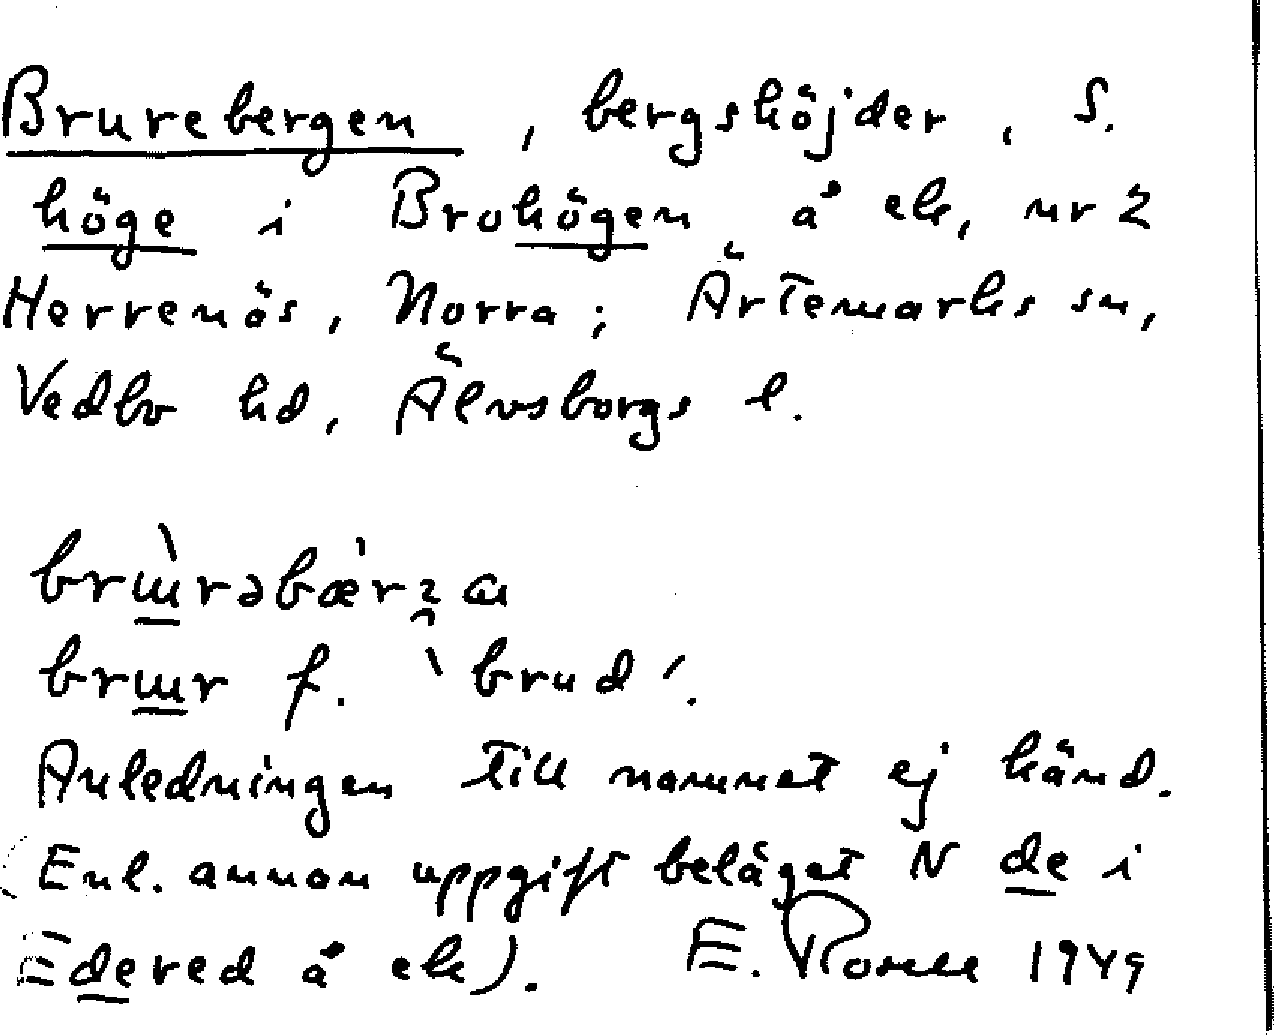 Brurebergen, bergshöjder, S.
höge i Brohögen å ek, nr 2
Herrenäs, Norra; Ärtemarks sn,
Vedbo hd, Älvsborgs l.
brɯ̀rəbǽrʒa
brɯr f. 'brud'.
Anledningen till namnet ej känd.
(Enl. annan uppgift beläget N de i
Edered å ek). E. 1949